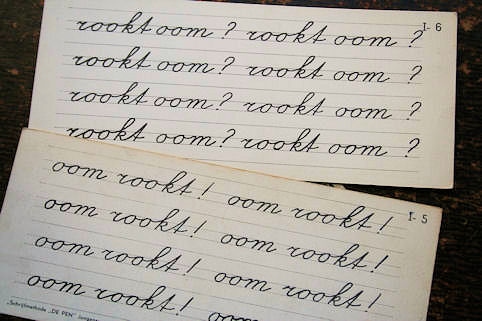 I-6
rookt oom ? rookt oom ?
rookt oom ? rookt oom ?
rookt oom ? rookt oom ?
rookt oom ? rookt oom ?
I-5
oom rookt! oom rookt!
oom rookt! oom rookt!
oom rookt! oom rookt!
oom rookt! oom
„Schrijfmethode „DE PEN"